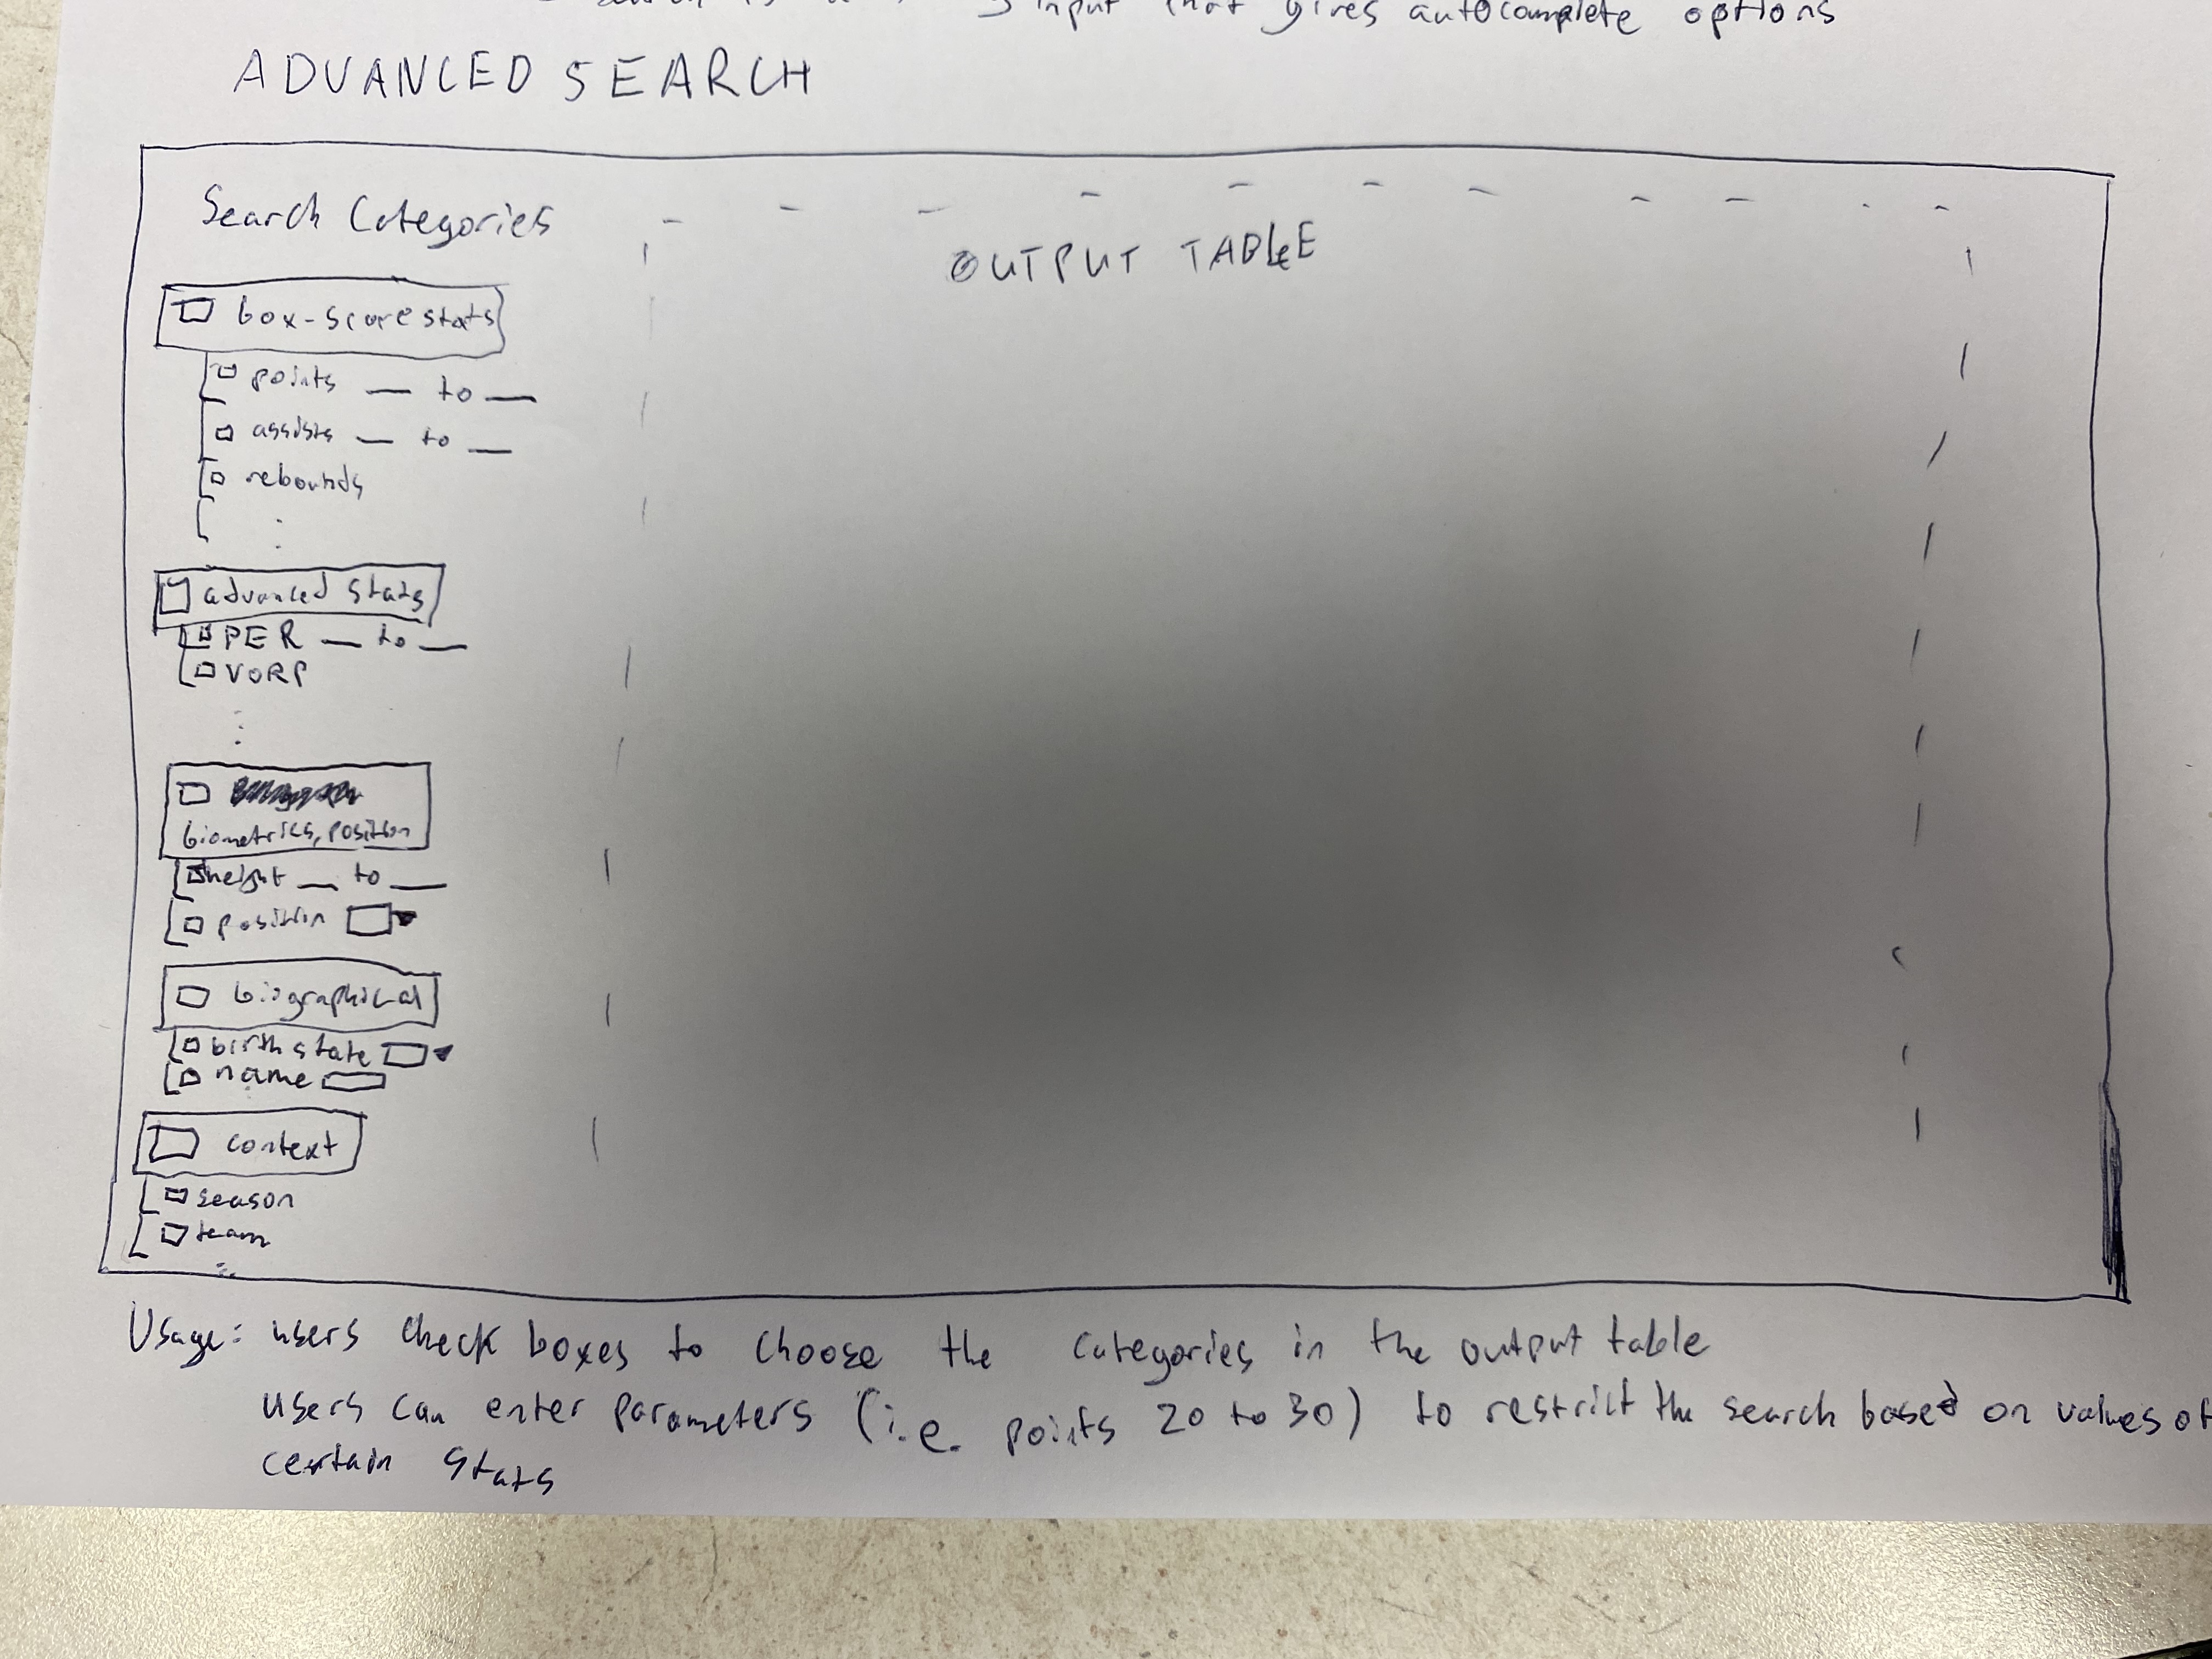 input that gives autocomplete options
ADVANCED SEARCH
Search Categories
OUTPUT TABLE
box-score stats
points — to —
assists — to —
rebounds
advanced stats
PER — to —
VORP
biometrics, position
height — to —
position
biographical
birth state
name
context
season
team
Usage: users check boxes to choose the categories in the output table
users can enter parameters (i.e. points 20 to 30) to restrict the search based on values of
certain stats